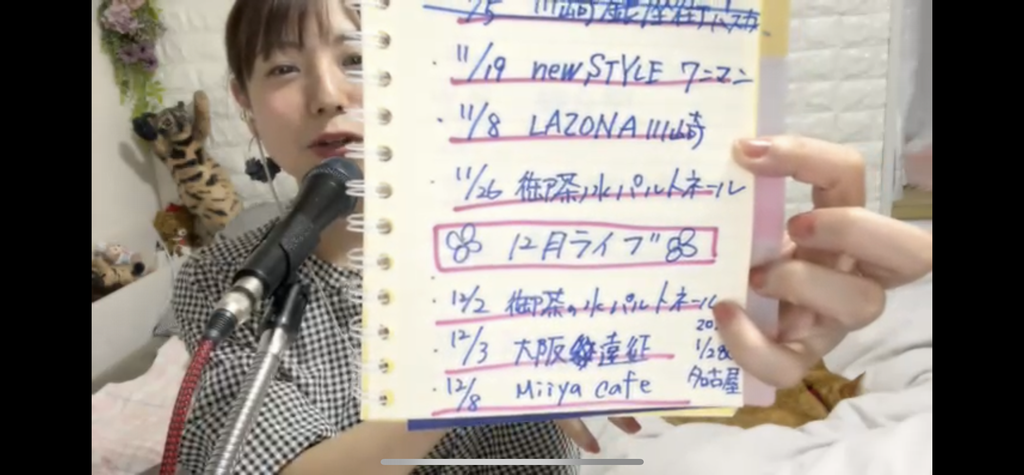 11/19 newSTYLE ワンマン
11/8 LAZONA 川崎
11/26 御茶ノ水パルトネール
12月ライブ
12/2 御茶の水パルトネール
12/3 大阪遠征
12/8 Miiya cafe
1/28
名古屋